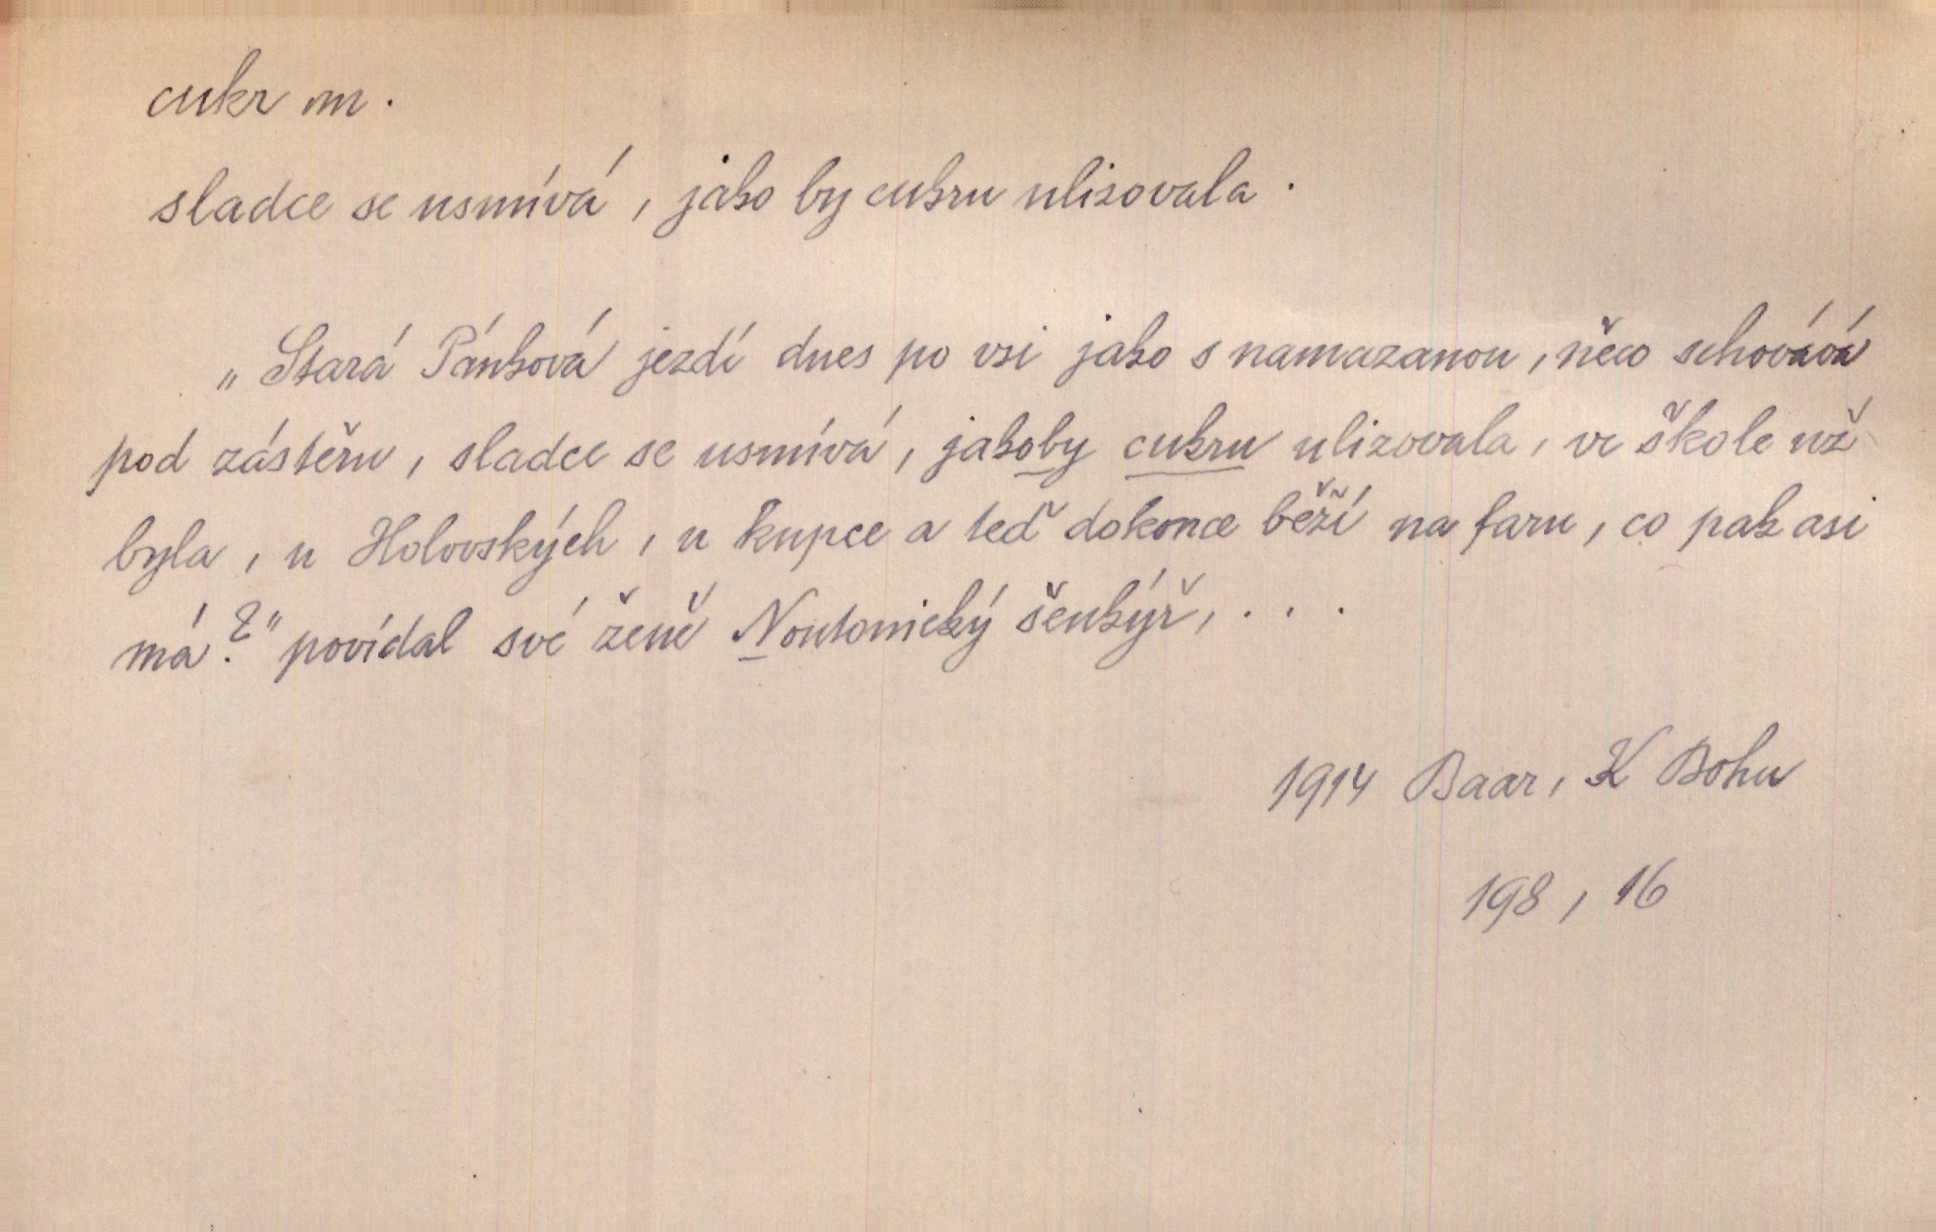 cukr m.
sladce se usmívá, jako by cukru ulizovala.
„Stará Pánková jezdí dnes po vsi jako s namazanou, něco schovává
pod zástěru, sladce se usmívá, jakoby cukru ulizovala, ve škole už
byla, u Holovských, u kupce a teď dokonce běží na faru, co pak asi
má?" povídal své ženě Noutonický šenkýř, . . .
1914 Baar, K Bohu
198, 16